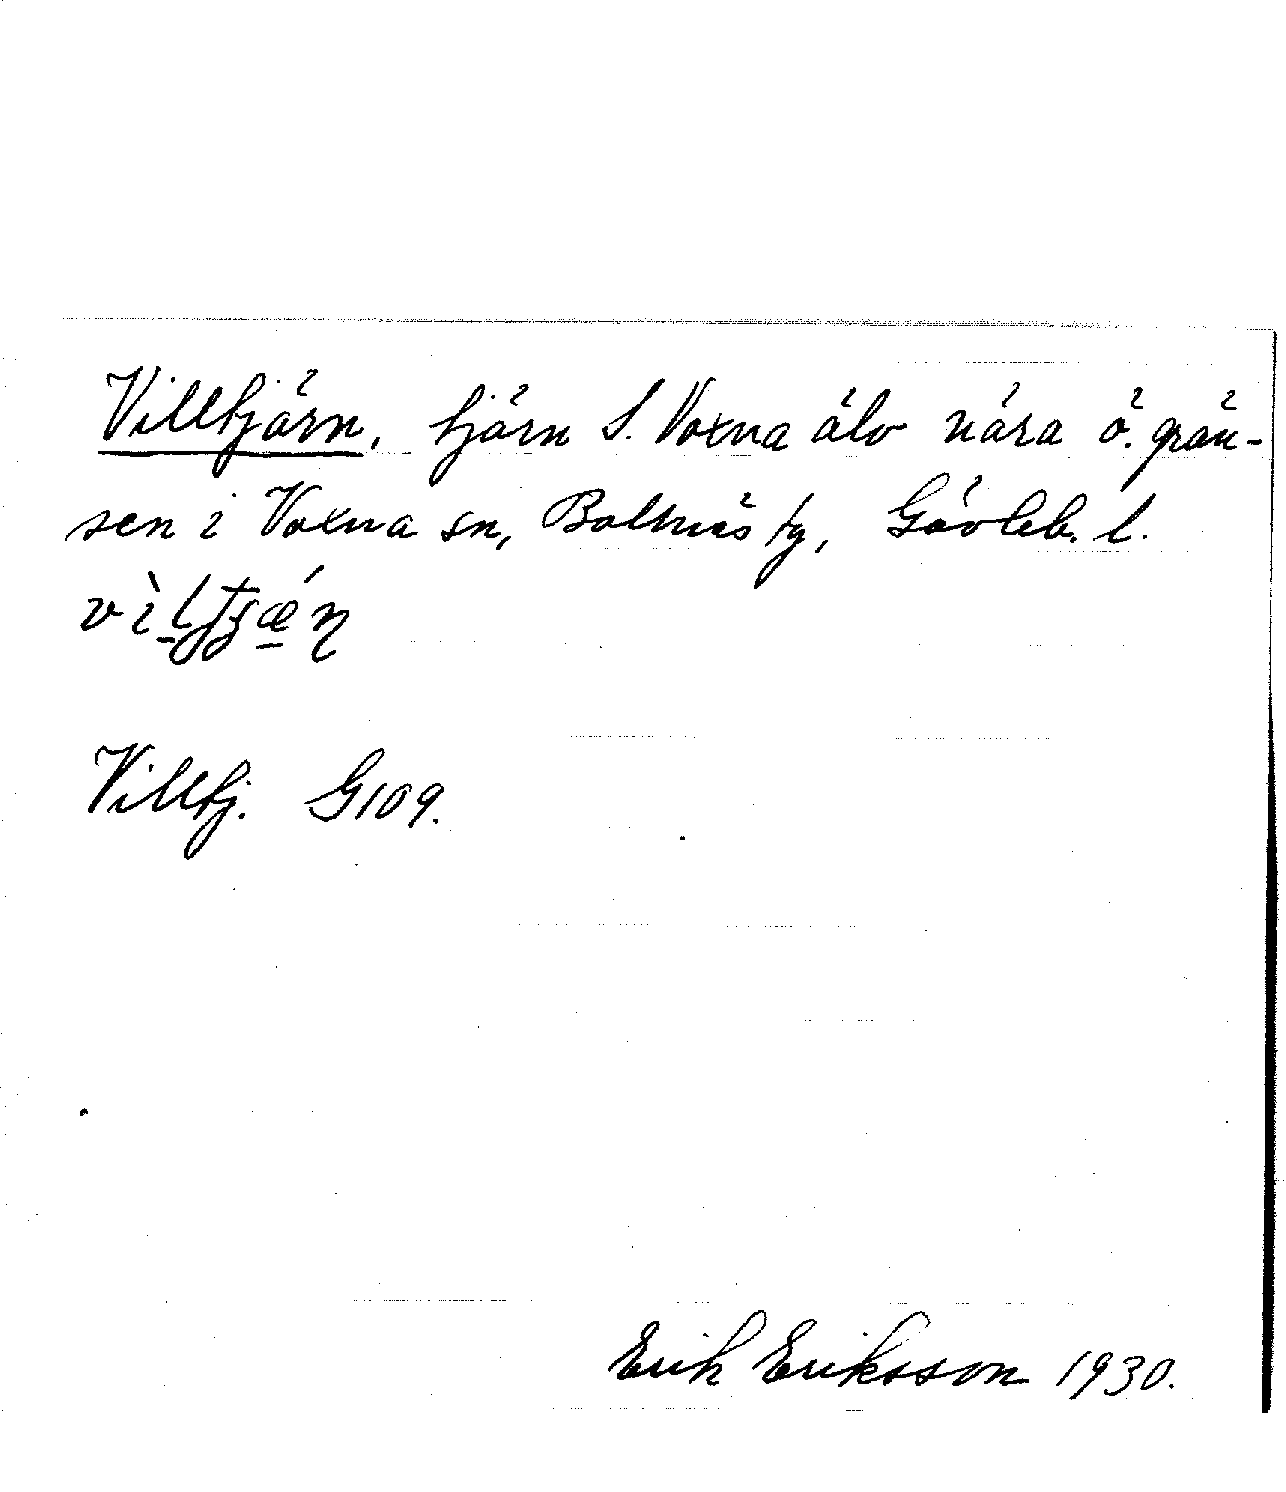 Villtjärn, tjärn S. Voxna älv nära ö. grän-
sen i Voxna sn, Bollnäs fg, Gävleb. l.
Villtj. G109.
Erik Eriksson 1930.